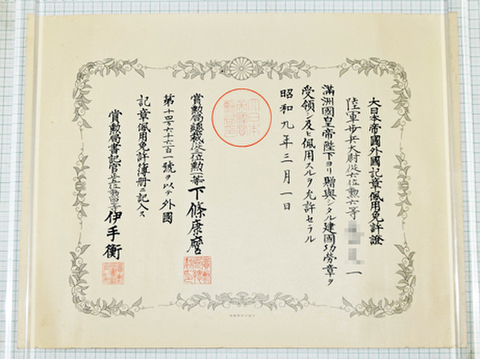 大日本帝國外國記章佩用免許證
陸軍歩兵大尉従六位勲六等 一
満洲國皇帝陛下ヨリ贈與シタル建國功勞章ヲ
受領シ及ヒ佩用スルヲ允許セラル
昭和九年三月一日
賞勲局總裁従 位勲 等下條康麿
第十四万六千六百一號ヲ以テ外國
記章佩用免許簿冊ニ記入ス
賞勲局書記官 位勲 等伊手衡